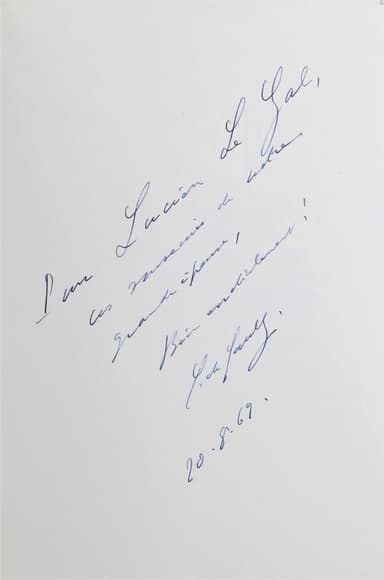 Pour Lucien Le Gal,
ces souvenirs de notre
grande époque,
Bien cordialement !
20.8.69.